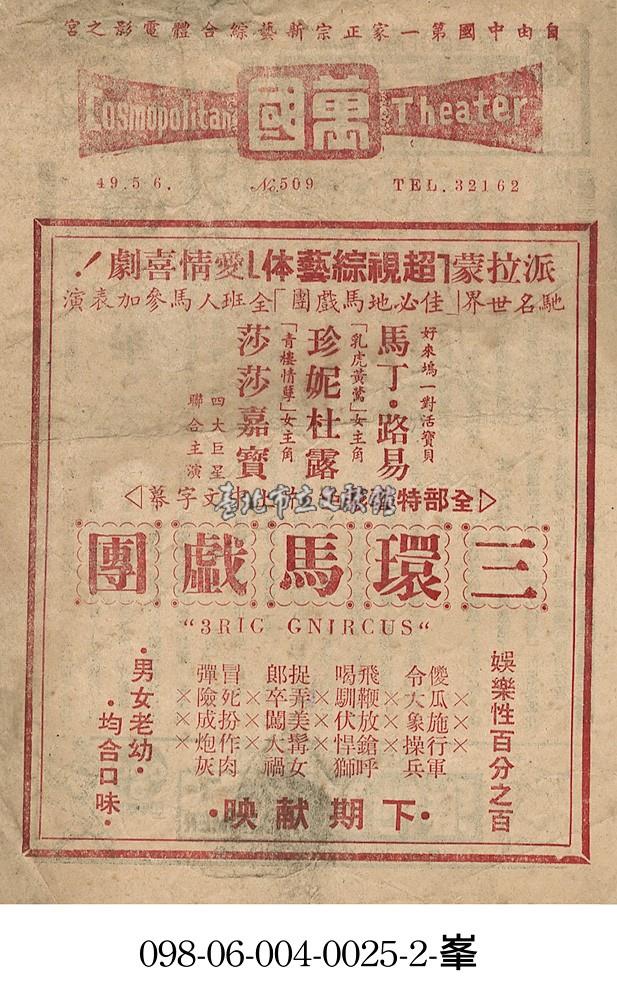 自由中國第一家正宗新藝綜合體電影之宮
Cosmopolitan 萬國 Theater
49.5.6. №509 TEL. 32162
派拉蒙「超視綜藝体」愛情喜劇！
馳名世界「佳必地馬戲團」全班人馬參加表演
好來塢一對活寶貝
馬丁·路易
「乳虎黃鶯」女主角
珍妮杜露
「青樓情孽」女主角
莎莎嘉寶
四大巨星
聯合主演
▷全部特 字幕◁
臺北市立文獻館
三環馬戲團
"3RIG GNIRCUS"
娛樂性百分之百
傻瓜施行軍
令大象操兵
×××
飛鞭放鎗呼
喝馴伏悍獅
×××
捉弄美髯女
郎卒闖大禍
×××
冒死扮作肉
彈險成炮灰
×××
·男女老幼·
·均合口味·
·下期献映·
098-06-004-0025-2-峯